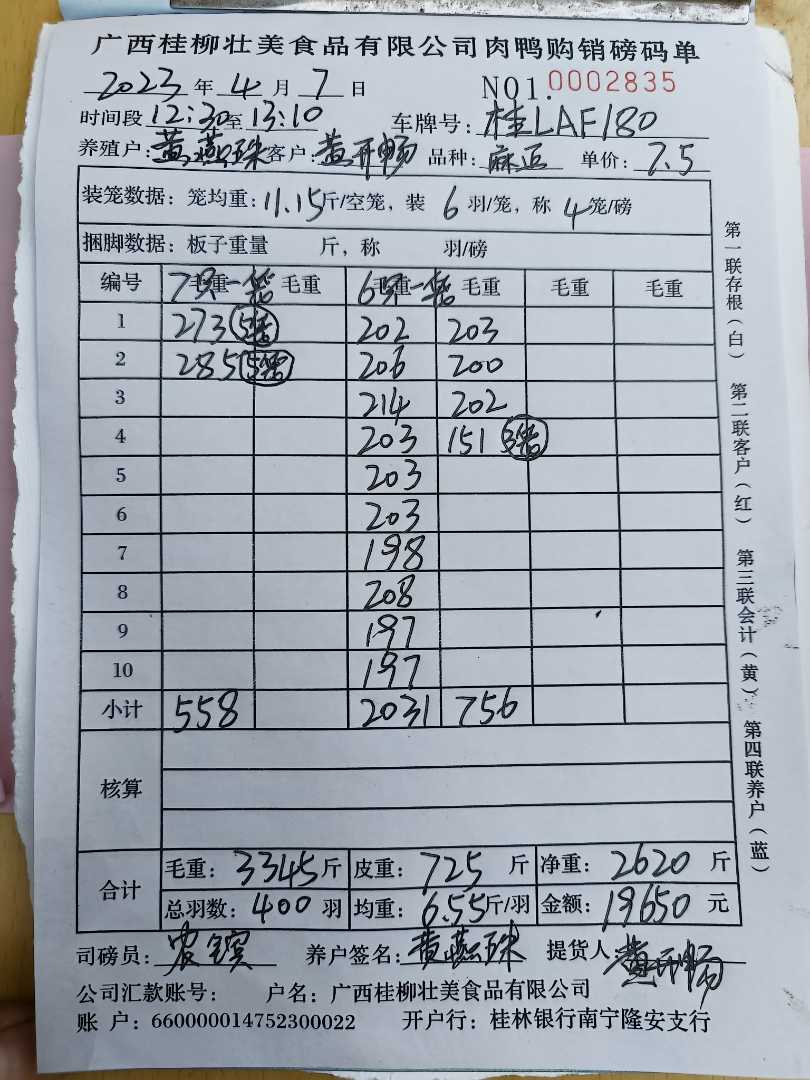 广西桂柳壮美食品有限公司肉鸭购销磅码单
2023 年 4 月 7 日 NO1. 0002835
时间段 12:30 至 13:10 车牌号: 桂LAF180
养殖户: 黄燕珠 客户: 黄开畅 品种: 麻正 单价: 7.5
装笼数据: 笼均重: 11.15 斤/空笼, 装 6 羽/笼, 称 4 笼/磅
捆脚数据: 板子重量 斤, 称 羽/磅
编号 毛重 毛重 毛重 毛重 毛重 毛重
7只一笼 6只一笼
1 273 5笼 202 203
2 285 5笼 206 200
3 214 202
4 203 151 3笼
5 203
6 203
7 198
8 208
9 197
10 197
小计 558 2031 756
核算
合计 毛重: 3345 斤 皮重: 725 斤 净重: 2620 斤
总羽数: 400 羽 均重: 6.55 斤/羽 金额: 19650 元
司磅员: 养户签名: 黄燕珠 提货人: 黄开畅
公司汇款账号: 户名: 广西桂柳壮美食品有限公司
账 户: 660000014752300022 开户行: 桂林银行南宁隆安支行
第一联存根(白) 第二联客户(红) 第三联会计(黄) 第四联养户(蓝)